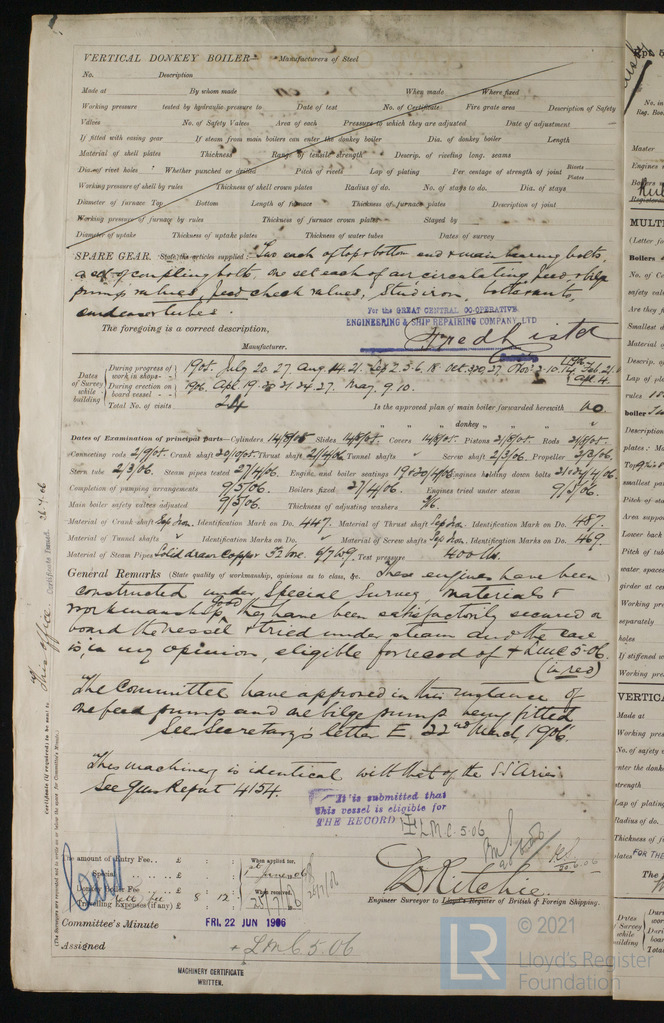 VERTICAL DONKEY BOILER— Manufacturers of Steel
No. Description
Made at By whom made When made Where fixed
Working pressure tested by hydraulic pressure to Date of test No. of Certificate Fire grate area Description of Safety
Valves No. of Safety Valves Area of each Pressure to which they are adjusted Date of adjustment
If fitted with easing gear If steam from main boilers can enter the donkey boiler Dia. of donkey boiler Length
Material of shell plates Thickness Range of tensile strength Descrip. of riveting long. seams
Dia. of rivet holes Whether punched or drilled Pitch of rivets Lap of plating Per centage of strength of joint Rivets Plates
Working pressure of shell by rules Thickness of shell crown plates Radius of do. No. of stays to do. Dia. of stays
Diameter of furnace Top Bottom Length of furnace Thickness of furnace plates Description of joint
Working pressure of furnace by rules Thickness of furnace crown plates Stayed by
Diameter of uptake Thickness of uptake plates Thickness of water tubes Dates of survey
SPARE GEAR. State the articles supplied:— Two each of top & bottom end & main bearing bolts,
a set of coupling bolts, one set each of air circulating, feed & bilge
pump valves, feed check valves, stud iron, bolts & nuts,
condenser tubes.
For the GREAT CENTRAL CO-OPERATIVE
ENGINEERING & SHIP REPAIRING COMPANY LTD
The foregoing is a correct description,
Manufacturer.
Dates of Survey while building
During progress of work in shops— 1905. July 20. 27. Aug. 14. 21. Sep 2. 5. 6. 18 Oct. 20. 27. Nov. 2. 10. 14
During erection on board vessel— 1906. Apl. 19. 20. 21. 24. 27. May. 9. 10.
Total No. of visits 24 Is the approved plan of main boiler forwarded herewith no.
" " " donkey " " "
Dates of Examination of principal parts—Cylinders 14/8/05. Slides 14/8/05. Covers 14/8/05. Pistons 21/8/05. Rods 21/8/05.
Connecting rods 2/9/05. Crank shaft 20/10/05. Thrust shaft 21/4/06 Tunnel shafts " Screw shaft 2/3/06. Propeller 2/3/06.
Stern tube 2/3/06. Steam pipes tested 27/4/06. Engine and boiler seatings 19 & 20/4/06. Engines holding down bolts 21 & 24/4/06.
Completion of pumping arrangements 9/5/06. Boilers fixed 27/4/06. Engines tried under steam 9/5/06.
Main boiler safety valves adjusted 9/5/06. Thickness of adjusting washers
Material of Crank shaft Scp Iron. Identification Mark on Do. 447. Material of Thrust shaft Scp Iron. Identification Mark on Do. 487.
Material of Tunnel shafts " Identification Marks on Do. " Material of Screw shafts Scp Iron. Identification Marks on Do. 469.
Material of Steam Pipes Solid drawn Copper Test pressure 400 lb.
General Remarks (State quality of workmanship, opinions as to class, &c. These engines have been
constructed under Special Survey, materials &
workmanship good, they have been satisfactorily secured on
board the vessel & tried under steam and the case
is, in my opinion, eligible for record of + LMC 5-06.
(in red)
The Committee have approved in this instance of
one feed pump and one bilge pump being fitted
See Secretary's letter E. 22nd March, 1906.
This machinery is identical with that of the S.S. Aries
See Gms Report 4154.
It is submitted that
this vessel is eligible for
THE RECORD + LMC. 5.06
The amount of Entry Fee .. £ : : When applied for,
Special .. .. £ : :
Donkey Boiler Fee .. .. £ : : When received,
Travelling Expenses (if any) £ 8 : 12 :
D Ritchie.
Engineer Surveyor to Lloyd's Register of British & Foreign Shipping.
Committee's Minute FRI. 22 JUN 1906
Assigned + LMC. 5. 06
MACHINERY CERTIFICATE
WRITTEN.
© 2021
LR
Lloyd's Register
Foundation
Certificate (if required) to be sent to This office
Certificate Issued 26.4.06
(The Surveyors are requested not to write on or below the space for Committee's Minute.)